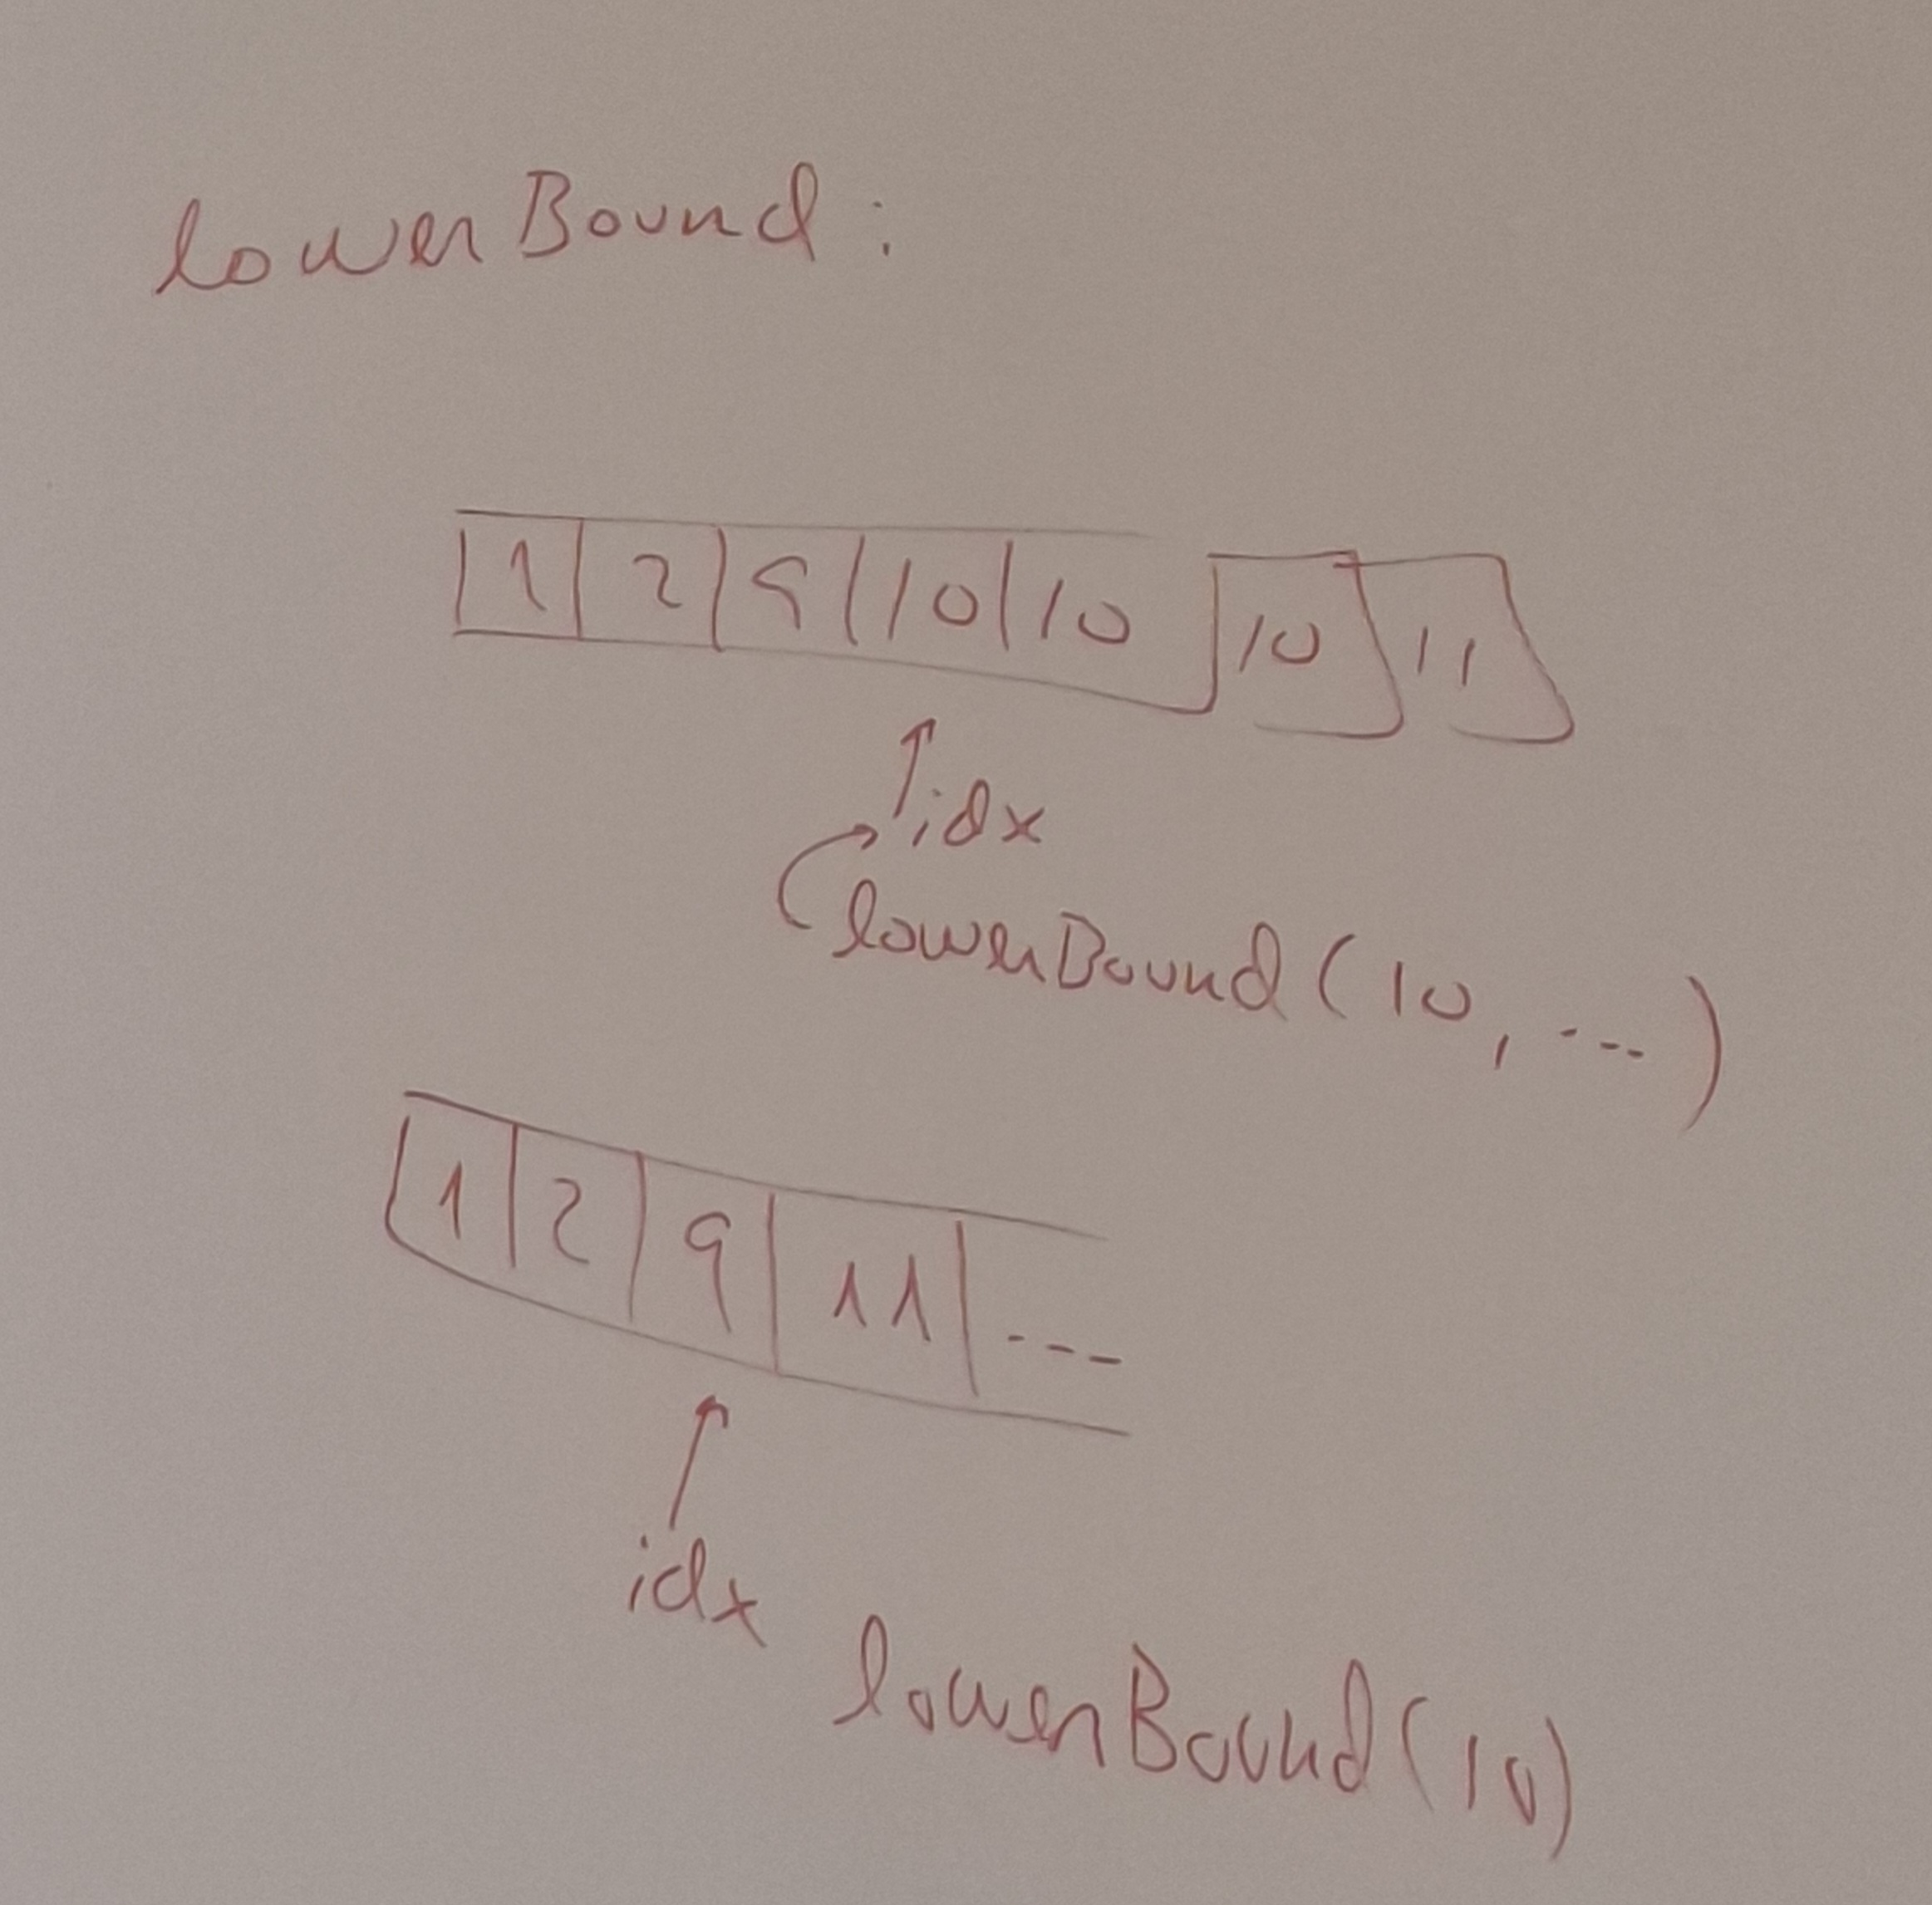 lowerBound:
1 2 9 10 10 10 11
idx
lowerBound(10, ...)
1 2 9 11 ---
idx
lowerBound(10)